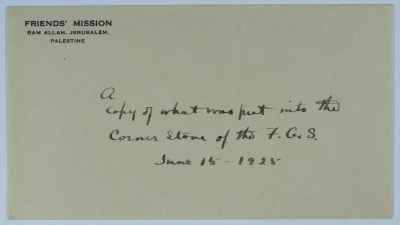 FRIENDS' MISSION
RAM ALLAH, JERUSALEM,
PALESTINE
A
copy of what was put into the
Corner Stone of the F. G. S.
June 15 - 1925